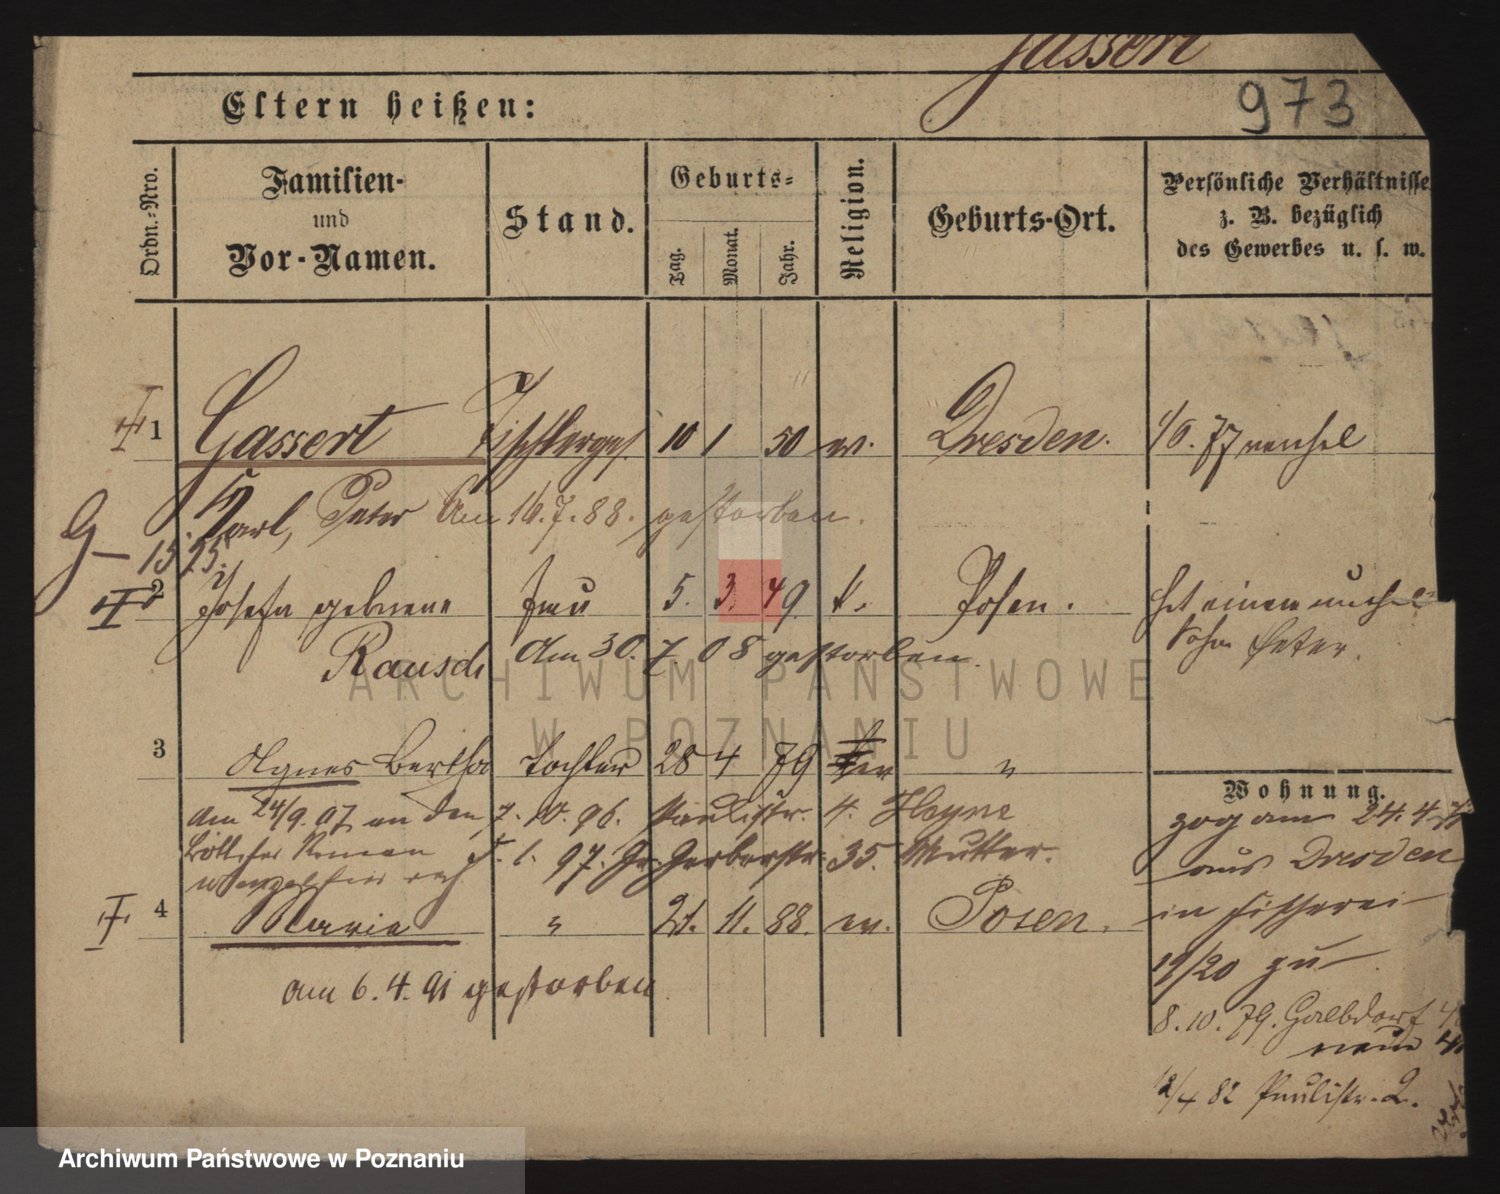 Gassert
973
Eltern heißen:
Ordn.-Nro.
Familien-
und
Vor-Namen.
Stand.
Geburts-
Tag.
Monat.
Jahr.
Religion.
Geburts-Ort.
Persönliche Verhältnisse
z. B. bezüglich
des Gewerbes u. s. w.
1 Gassert Tischlerges. 10 1 50 ev. Dresden.
Carl, Peter Am 16.7.88. gestorben.
G- 15.25.
2 Josefa geborene Frau 5. 3. 49 k. Posen. hat einen
Rausch Am 30. 7. 08 gestorben. Sohn Peter.
3 Agnes Bertha Tochter 28 4 79 ev "
am 24/9.07 an den 7. 10. 96. Paulistr. 4. Heyne
5. 1. 97. Gr. Gerberstr. 35. Mutter.
4 Maria " 21. 11. 88. ev. Posen.
am 6. 4. 91 gestorben
Wohnung.
zog am 24.4.
aus Dresden
in Fischerei
19/20 zu
8. 10. 79. Halbdorf
12/4 82 Paulistr. 2.
ARCHIWUM PAŃSTWOWE
W POZNANIU
Archiwum Państwowe w Poznaniu